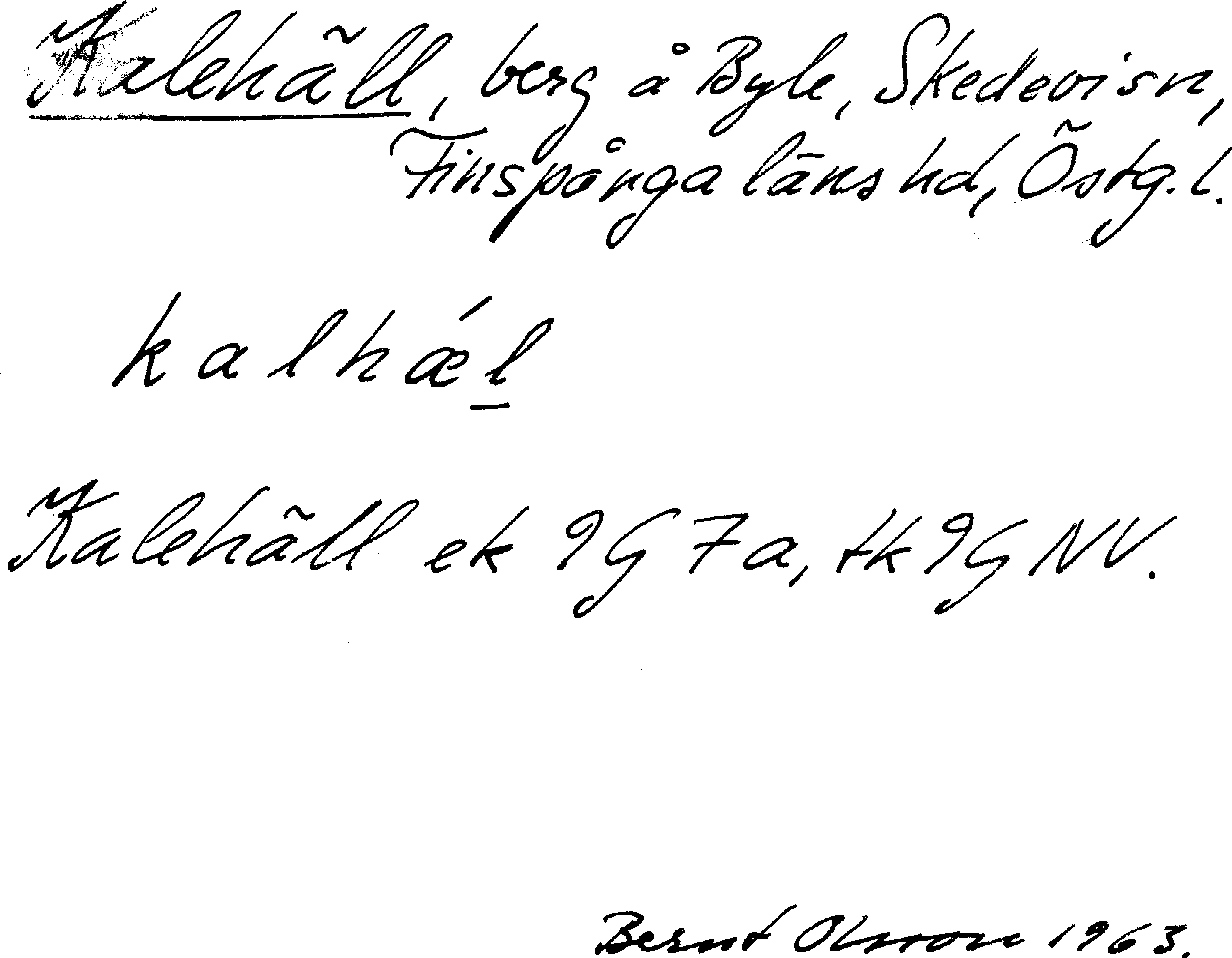 Kalehäll, berg å Byle, Skedevi sn,
Finspånga läns hd, Östg. l.
kalhǽl̲
Kalehäll ek 9G 7a, tk 9G NV.
Bernt Olsson 1963.